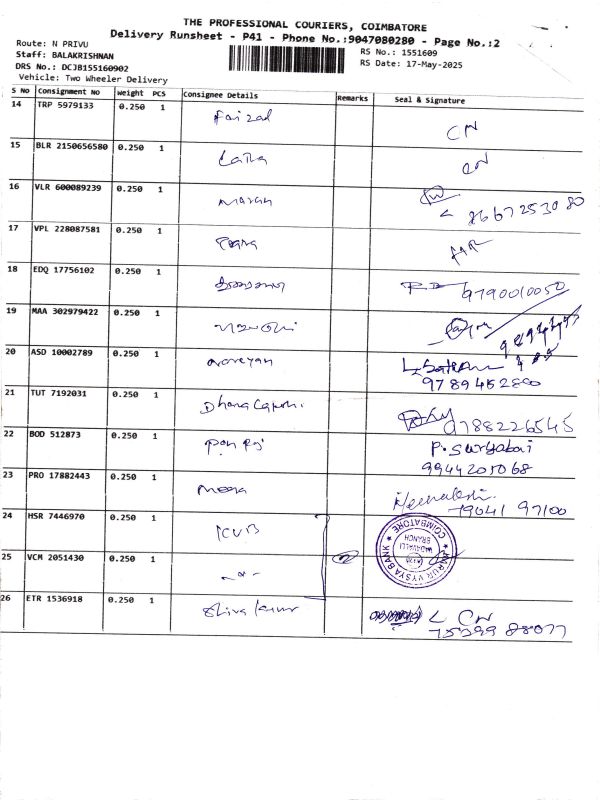 THE PROFESSIONAL COURIERS, COIMBATORE
Delivery Runsheet - P41 - Phone No.:9047080280 - Page No.:2
Route: N PRIVU
Staff: BALAKRISHNAN
DRS No.: DCJB155160902
Vehicle: Two Wheeler Delivery
RS No.: 1551609
RS Date: 17-May-2025
S No Consignment No Weight PCS Consignee Details Remarks Seal & Signature
14 TRP 5979133 0.250 1 Faizal CN
15 BLR 2150656580 0.250 1 CN
16 VLR 600089239 0.250 1 8667253080
17 VPL 228087581 0.250 1
18 EDQ 17756102 0.250 1 9790010050
19 MAA 302979422 0.250 1
20 ASD 10002789 0.250 1 Narayan
9789452800
21 TUT 7192031 0.250 1 9788226545
22 BOD 512873 0.250 1 P. Suryabai
9944205068
23 PRO 17882443 0.250 1 Meena Meenakshi
79041 97100
24 HSR 7446970 0.250 1 KVB
KARUR VYSYA BANK
VADAVALLI
BRANCH
COIMBATORE
25 VCM 2051430 0.250 1 2
26 ETR 1536918 0.250 1 Shiva Kumar L CN
75399 88077